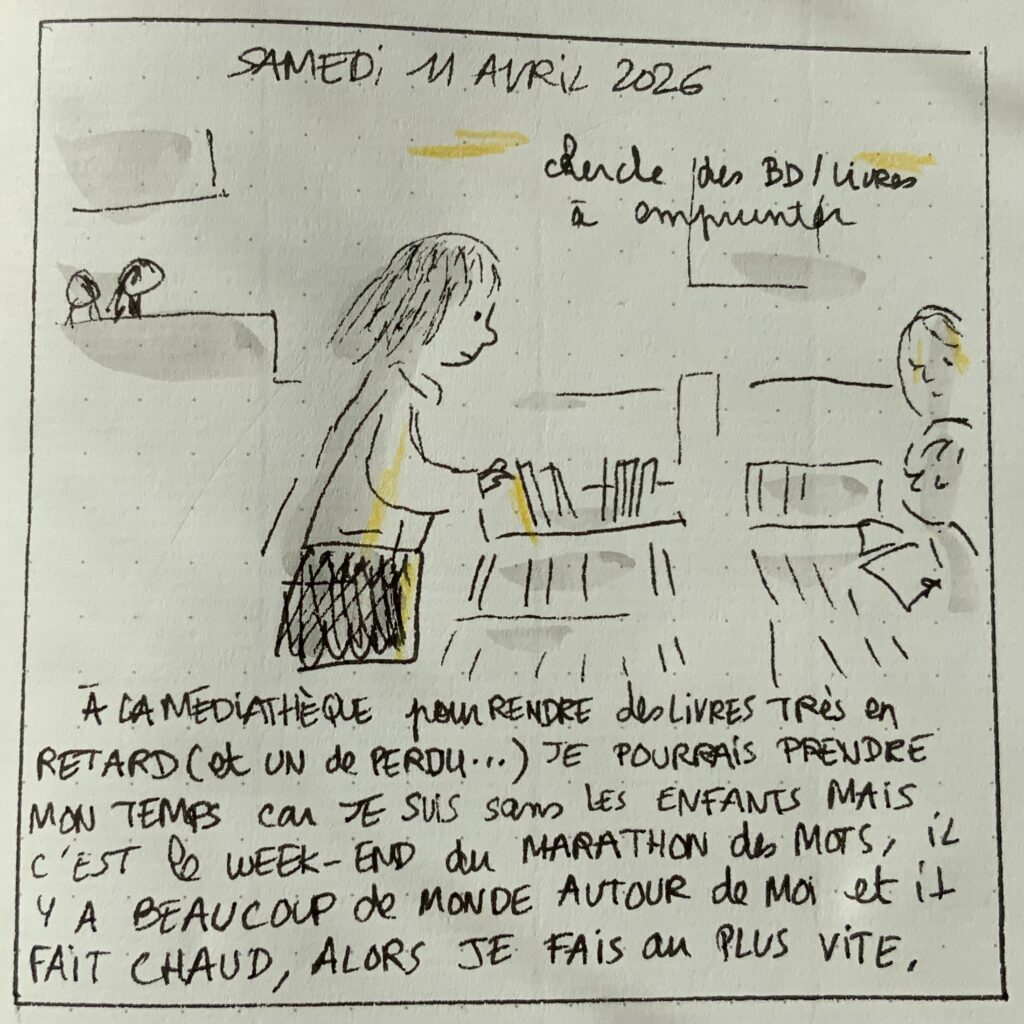 SAMEDi 11 AVRiL 2026
cherche des BD/Livres
à emprunter
À LA MEDIATHÈQUE pour RENDRE des LIVRES TRès en
RETARD (et UN de PERDU...) JE POURRAIS PRENDRE
MON TEMPS car JE SUIS sans LES ENFANTS MAIS
C'EST le WEEK-END du MARATHON des MOTS, iL
Y A BEAUCOUP de MONDE AUTOUR de Moi et il
FAIT CHAUD, ALORS JE FAIS au PLUS VITE.